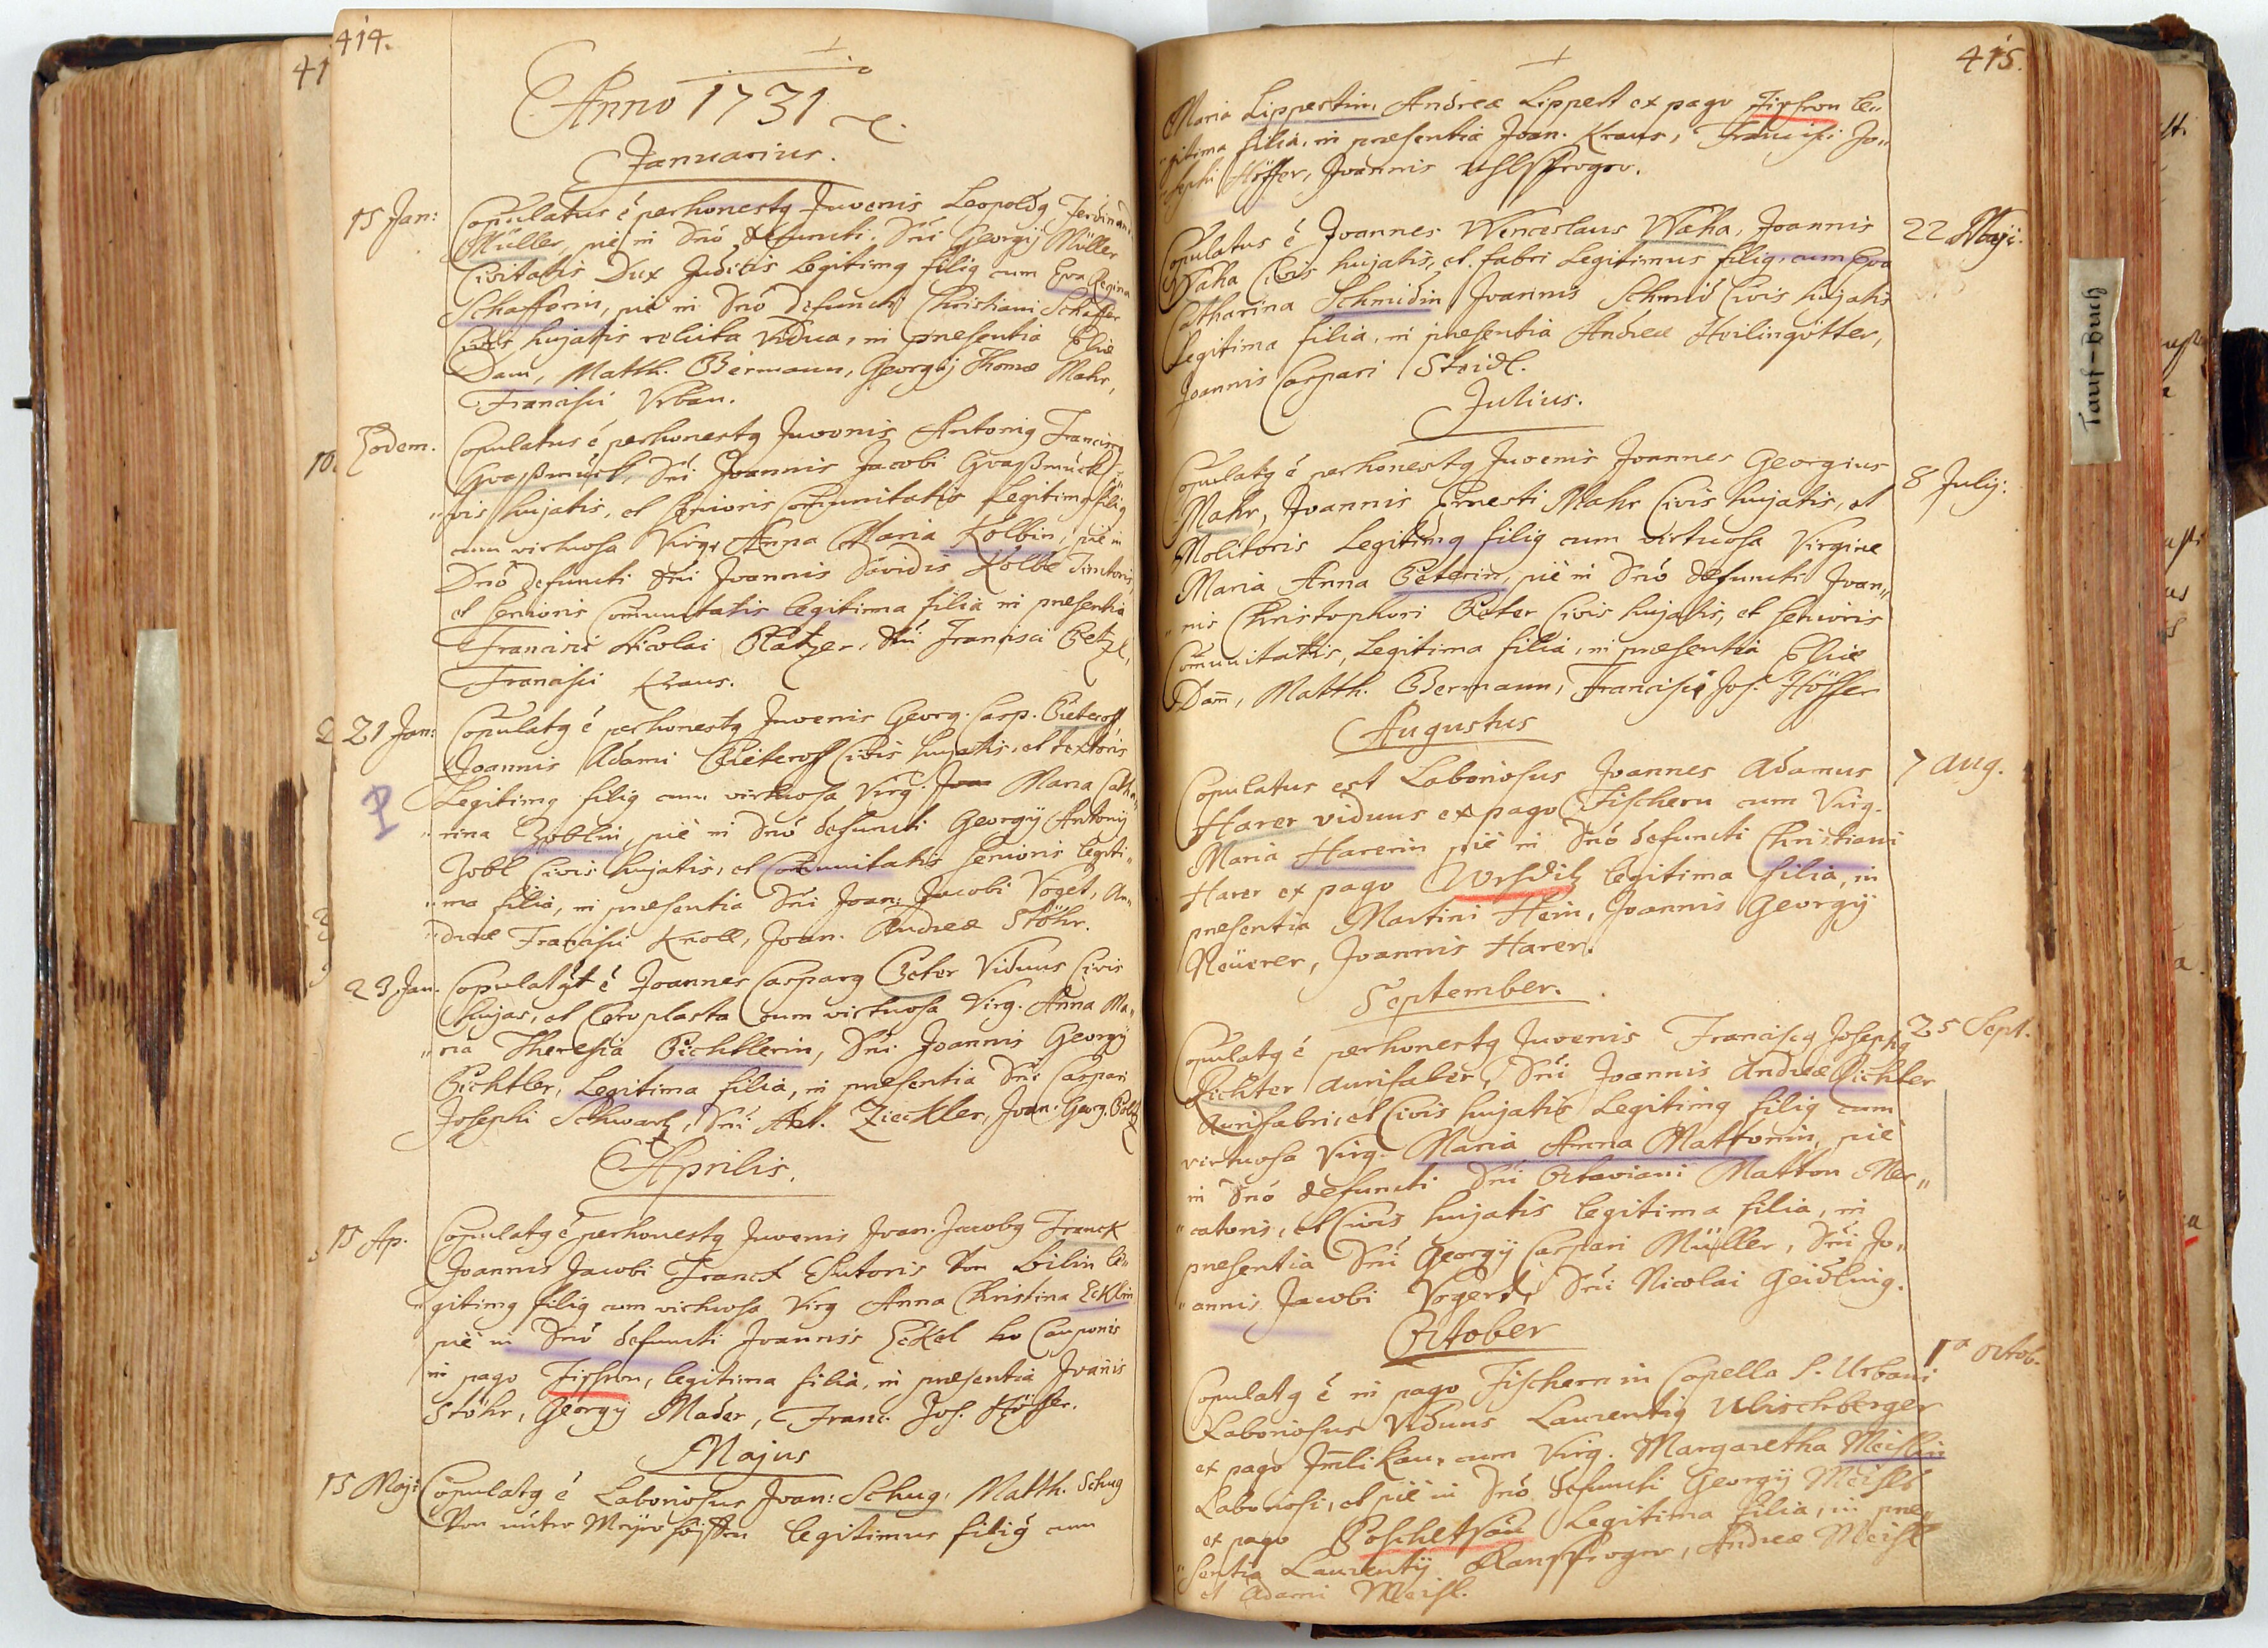 414.
Anno 1731
Januarius.
15 Jan:
Copulatus é perhonestg Juvenis Leopoldg Ferdinand
Müller, piè in Dnó defuncti Dni Georgij Müller
Civitatis Dux Juditis Legitimg filig cum Eva Regina
Schafferin, piè in Dnó defuncti Christiani Schaffer
Civis hujatis relicta Vidua, in praesentia Eliae
Dam, Matth. Bermann, Georgij Thomae Mahr,
Francisci Urban.
Eodem.
Copulatus é perhonestg Juvenis Antonig Franciscg
Graßmück, Dni Joannis Jacobi Graßmück Ci„
„vis hujatis, et Senioris Com̄unitatis Legitimg filig
cum virtuosa Virg. Anna Maria Kolbin, piè in
Dnó defuncti Dni Joannis Davidis Kolbe Tinctoris,
et Senioris Com̄unitatis legitima filia in praesentia
Francisci Nicolai Platzer, Dni Francisci Petzl,
Francisci Kraus.
21 Jan:
Copulatg é perhonestg Juvenis Georg. Casp. Pieteroff
Joannis Adami Pieteroff Civis hujatis, et textoris
Legitimg filig cum virtuosa Virg. Maria Catha„
„rina Zoblin, piè in Dnó defuncti Georgij Antonij
Zobl Civis hujatis, et Com̄unitatis Senioris legiti„
„ma filia, in praesentia Dni Joan: Jacobi Voget, An„
„dreae Francisci Knoll, Joan. Andreae Stöhr.
23. Jan.
Copulatgt é Joannes Casparg Peter Viduus Civis
hujas, et Ceroplasta cum virtuosa Virg. Anna Ma„
„ria Theresia Pichtlerin, Dni Joannis Georgij
Pichtler, Legitima filia, in praesentia Dni Caspari
Josephi Schwartz, Dni Ant. Zieckler, Joan. Georg.
Aprilis.
15 Ap.
Copulatg é perhonestg Juvenis Joan. Jacobg Franck
Joannis Jacobi Franck Sutoris Von Bilin le„
„gitimg filig cum virtuosa Virg Anna Christina Ecklin
piè in Dnó defuncti Joannis Eckel Cauponis
in pago Fischern, legitima filia, in praesentia Joan̄is
Stöhr, Georgij Mader, Franc. Jos. Höffer.
Majus
15 Maji
Copulatg é Laboriosus Joan: Schug, Matth. Schug
Von legitimus filig cum
415.
Maria Lippertin, Andreae Lippert ex pago Fischern le„
„gitima filia, in praesentia Joan. Kraus, Francisci Jo„
„sephi Höffer, Joannis
22 Maji.
Copulatus é Joannes Wenceslaus Waha, Joannis
Waha Civis hujatis, et fabri Legitimus filig, cum Eva
Catharina Schmidin Joannis Schmid Civis hujatis
Legitima filia, in praesentia Andreae Heilingötter,
Joannis Caspari Steidl.
Julius.
8 Julij.
Copulatg é perhonestg Juvenis Joannes Georgius
Mahr, Joannis Ernesti Mahr Civis hujatis, et
Molitoris Legitimg filig cum virtuosa Virgine
Maria Anna Peterin, piè in Dnó defuncti Joan„
„nis Christophori Peter Civis hujatis, et Senioris
Com̄unitatis, Legitima filia, in praesentia Eliae
Dam̄, Matth. Bermann, Francisci Jos. Höffer
Augustus
7 Aug.
Copulatus est Laboriosus Joannes Adamus
Harer viduus ex pago Fischern cum Virg.
Maria Harerin piè in Dnó defuncti Christiani
Harer ex pago legitima filia, in
praesentia Martini Hein, Joannis Georgij
Neüerer, Joannis Harer.
September.
25 Sept.
Copulatg é perhonestg Juvenis Franciscg Josephg
Richter Aurifaber, Dni Joannis Andreae Richter
Aurifabri, et Civis hujatis Legitimg filig cum
virtuosa Virg. Maria Anna Mattonin, piè
in Dnó defuncti Dni Octaviani Matton Mer„
„catoris, et Civis hujatis legitima filia, in
praesentia Dni Georgij Caspari Müller, Dni Jo„
„annis Jacobi Dni Nicolai
October
1ª Octob.
Copulatg é in pago Fischern in Capella S. Urbani
Laboriosus Viduus Laurentig Ulischberger
ex pago cum Virg. Margaretha Meislin
Laboriosi, et piè in Dnó defuncti Georgij Meisl
ex pago Poschetzau Legitima filia, in prae„
„sentia Laurentij Andreae Meisl
et Adami Meisl.
Tauf-Buch